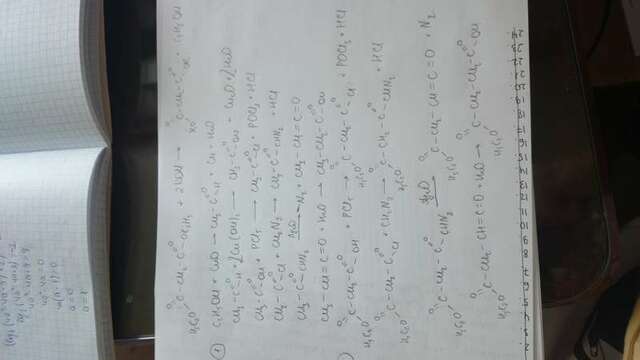 4a² - 4a + 9 > 9
4a² - 4a = 0
a = 0
a = 1
O=C(H₅C₂O) - CH₂ - C(=O)OC₂H₅ + 2KOH → O=C(KO) - CH₂ - C(=O)OK + C₂H₅OH
1 C₂H₅OH + CuO → CH₃ - C(=O)H + Cu + H₂O
CH₃ - C(=O)H + 2Cu(OH)₂ → CH₃ - C(=O)OH + Cu₂O + 2H₂O
CH₃ - C(=O)OH + PCl₅ → CH₃ - C(=O)Cl + POCl₃ + HCl
CH₃ - C(=O)Cl + CH₂N₂ → CH₃ - C(=O)CHN₂ + HCl
CH₃ - C(=O)CHN₂ Ag₂O → N₂ + CH₃ - CH = C = O
CH₃ - CH = C = O + H₂O → CH₃ - CH₂ - C(=O)OH
O=C(H₅C₂O) - CH₂ - C(=O)OH + PCl₅ → O=C(H₅C₂O) - CH₂ - C(=O)Cl + POCl₃ + HCl
O=C(H₅C₂O) - CH₂ - C(=O)Cl + CH₂N₂ → O=C(H₅C₂O) - CH₂ - C(=O)CHN₂ + HCl
O=C(H₅C₂O) - CH₂ - C(=O)CHN₂ Ag₂O → O=C(H₅C₂O) - CH₂ - CH = C = O + N₂
O=C(H₅C₂O) - CH₂ - CH = C = O + H₂O → O=C(H₅C₂O) - CH₂ - CH₂ - C(=O)OH
2 3 4 5 6 7 8 9 10 11 12 13 14 15 16 17 18 19 20 21 22 23 24